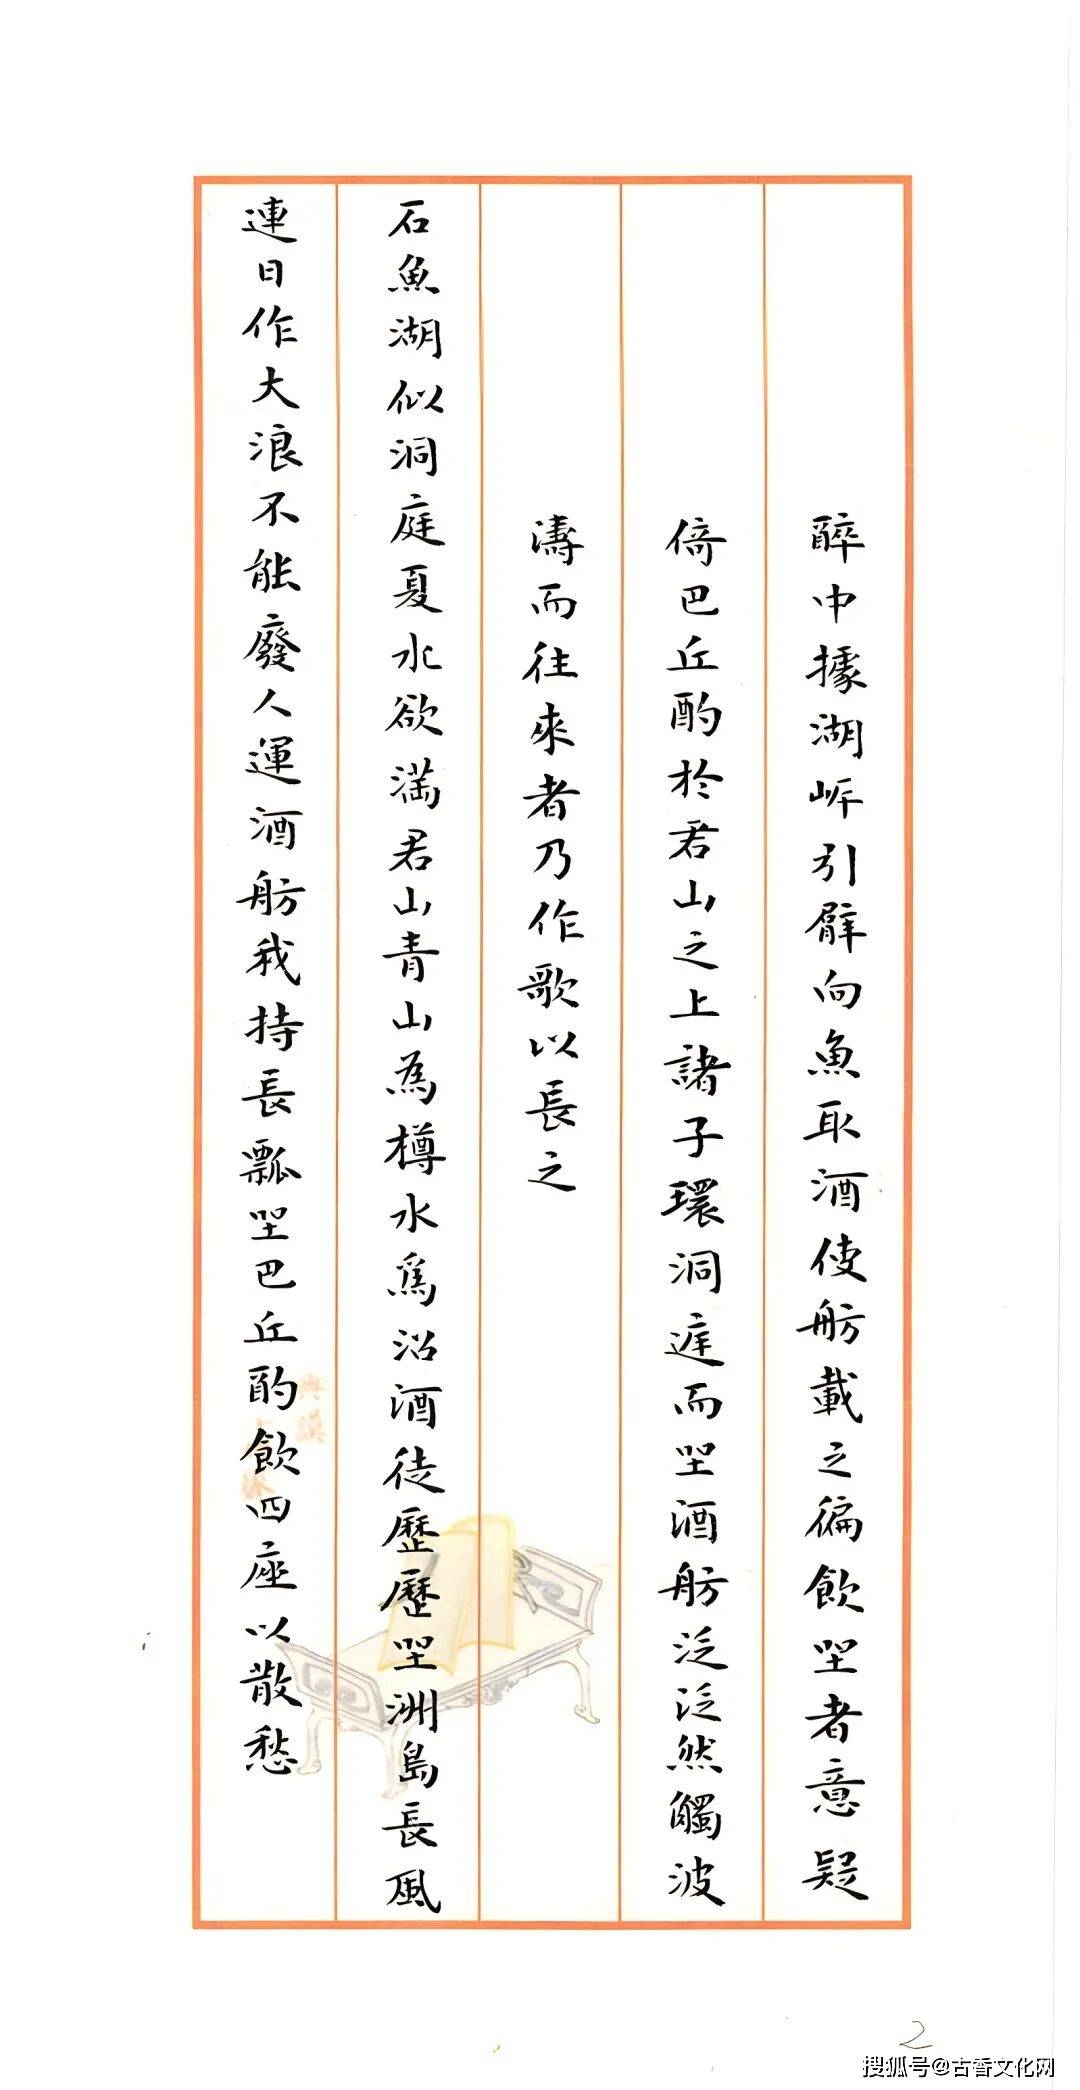 醉中據湖岍引臂向魚取酒使舫載之徧飲坐者意疑
倚巴丘酌於君山之上諸子環洞庭而坐酒舫泛泛然觸波
濤而往來者乃作歌以長之
石魚湖似洞庭夏水欲滿君山青山為樽水為沼酒徒歷歷坐洲島長風
連日作大浪不能廢人運酒舫我持長瓢坐巴丘酌飲四座以散愁
2
搜狐号@古香文化网